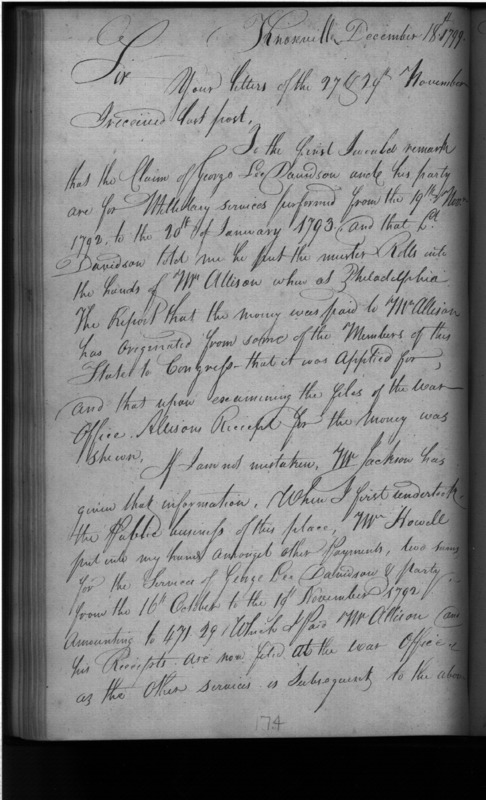 Knoxville December 18th 1799
Sir
Your letters of the 27 & 29th November
I received last post,
To the first I would remark
that the Claim of George Lee Davidson and his party
are for Military services performed from the 19th Novr
1792, to the 20th of January 1793 and that Lt
Davidson told me he put the muster Rolls into
the hands of Mr Allison when at Philadelphia.
The Report that the money was paid to Mr Allison
has originated from some of the Members of this
State to Congress that it was Applied for,
and that upon examining the files of the War
Office, Allisons Receipt for the Money was
shewn. If I am not mistaken, Mr Jackson has
given that information. When I first undertook
the Public business of this place, Mr Howell
put into my hands amongst other Payments, two sums
for the Services of George Lee Davidson & party
from the 16th October to the 19th November 1792
Amounting to 471.29 Which I Paid Mr Allison and
his Receipts are now filed at the War Office &
as the other services is Subsequent to the above
174